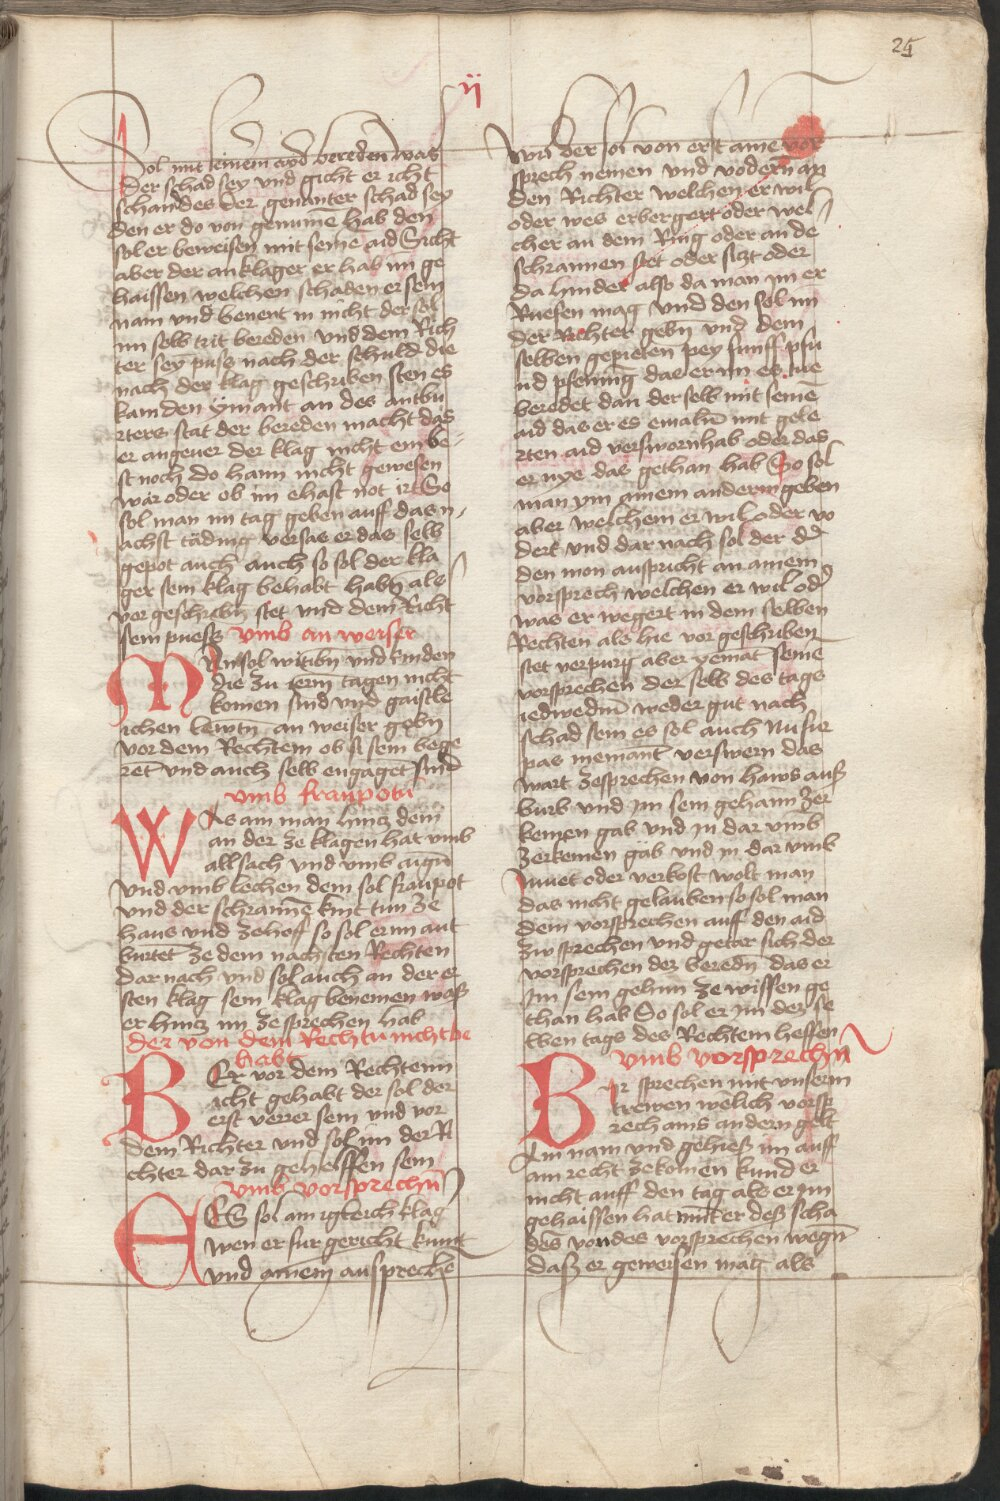 25
ij
Sol mit seinem aid bereden was
der schad sey vnd gicht er icht
schandes der genanter schad sey
den er do von genume hab den
sol er beweisen mit seine aid Sicht
aber der anklager er hab im ge
haissen welchen schaden er sein
nam vnd benent in nicht der sol
im selb trit bereden vnd dem Rich
ter sey puss nach der schuld die
nach der klag geschriben sten es
kam den ymant an des antbu
rters stat der bereden macht das
er angeuer der klag nicht ein be
st noch do haim nicht gewesen
war oder ob im ehaft not irt So
sol man im tag geben auff das n
achst täding versas er das selb
gepot auch auch so sol der kla
ger sein klag behabt habn als
vor geschribn stet vnd dem Richt
sein puess vmb an weiser
MAn sol witibn vnd kinden
die zu iern tagen nicht
komen sind vnd gaistle
ichen lewtn an weiser gebn
vor dem Rechtem ob si sein bege
ret vnd auch selb engaget sind
vmb franpotn
WAs am man hincz dem
an der ze klagen hat vmb
all sach vnd vmb aign
vnd vmb lechen dem sol franpot
vnd der schranne knit tun ze
haus vnd ze hoff so sol er im ant
burtet ze dem nachsten Rechten
dar nach vnd sol auch an der er
sten klag sein klag benemen was
er hincz im ze sprechen hab
der von dem Rechtn nicht be
habt
BEr vor dem Rechtenn
icht gehabt der sol der
erst verrer sein vnd vor
dem Richter vnd sol im der Ri
chter dar zu gehelffen sein
vmb vorsprechn
EES sol am igleich klag
wen er fur gericht kumt
vnd ainem ansprechen
wil der sol von erst aine vor
sprech nemen vnd vodern an
den Richter welchen er wil
oder wes er begert oder wel
cher an dem Ring oder an de
schrannen stet oder siczt oder
da hinder also da man im er
Ruefen mag vnd den sol im
der Richter gebn vnd dem
selben gepieten pey funff pfu
nd pfening das er im es tue
beredet dan der selb mit seine
aid das er es emaln mit gele
rten aid versworn hab oder das
er nye das gethan hab So sol
man ym ainem andern geben
aber welchem er wil oder vo
dert vnd dar nach sol der
den mon anspricht an ainem
vorsprech welchen er wil od
was er wegert in dem selben
Rechten als hie vor geschriben
stet verpurg aber yemat seine
vorsprechen der selb des tags
iedwedm weder gut nach
schad sein es sol auch nu fur
pas niemant verswern das
wart ze sprechen von haws auß
burb vnd im sein gehaim zer
kenen gab vnd in dar vmb
zerkenen gäb vnd in dar vmb
muet oder verkost wolt man
das nicht gelauben so sol man
dem vorsprechen auff den aid
zu sprechen vnd getar sich der
vorsprechen dez beredn das er
im sein gehim ze wissen ge
than hab So sol er im dez se
lben tags des Rechtem helffen
vmb vorsprechn
BIr sprechen mit vnserm
trewen welich vorsp
rech ains andern gelt
Am nam vnd gehiess im auff
am recht ze komen kund er
nicht auff den tag als er im
gehaissen hat nimt er deß scha
des von des vorsprechen wegn
daß er geweisen mag als